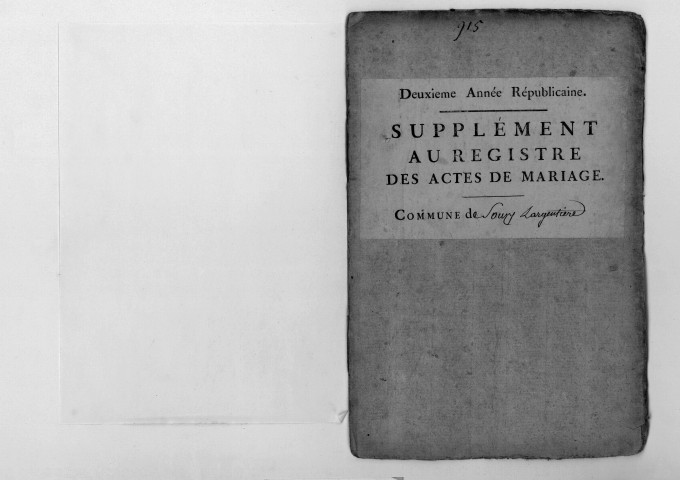 915
Deuxieme Année Républicaine.
SUPPLÉMENT
AU REGISTRE
DES ACTES DE MARIAGE.
COMMUNE de Soucy Largentière